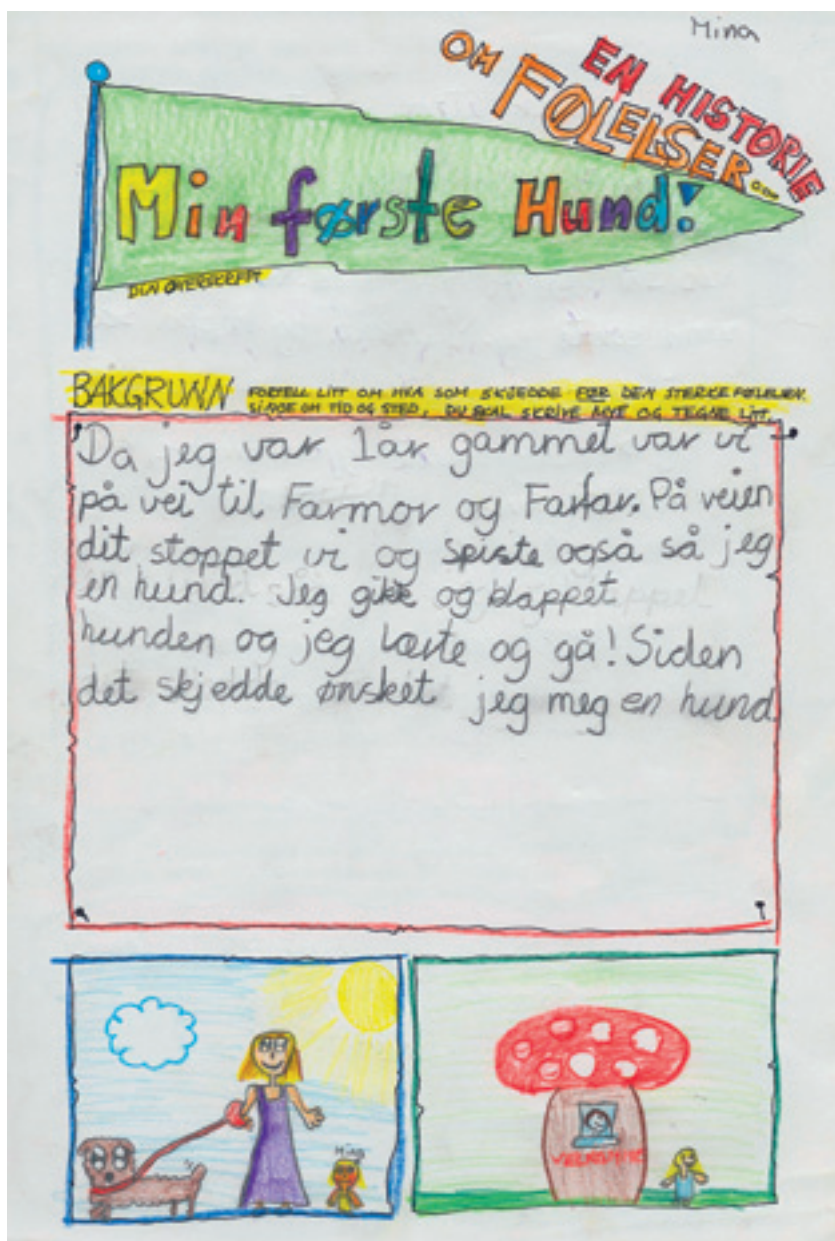 Mina
EN HISTORIE
OM FØLELSER...
Min første Hund!
DIN OVERSKRIFT
BAKGRUNN FORTELL LITT OM HVA SOM SKJEDDE FØR DEN STERKE FØLELSEN.
SI NOE OM TID OG STED, DU SKAL SKRIVE MYE OG TEGNE LITT.
Da jeg var 1 år gammel var vi
på vei til Farmor og Farfar. På veien
dit stoppet vi og spiste også så jeg
en hund. Jeg gikk og klappet
hunden og jeg lærte og gå! Siden
det skjedde ønsket jeg meg en hund
Mina